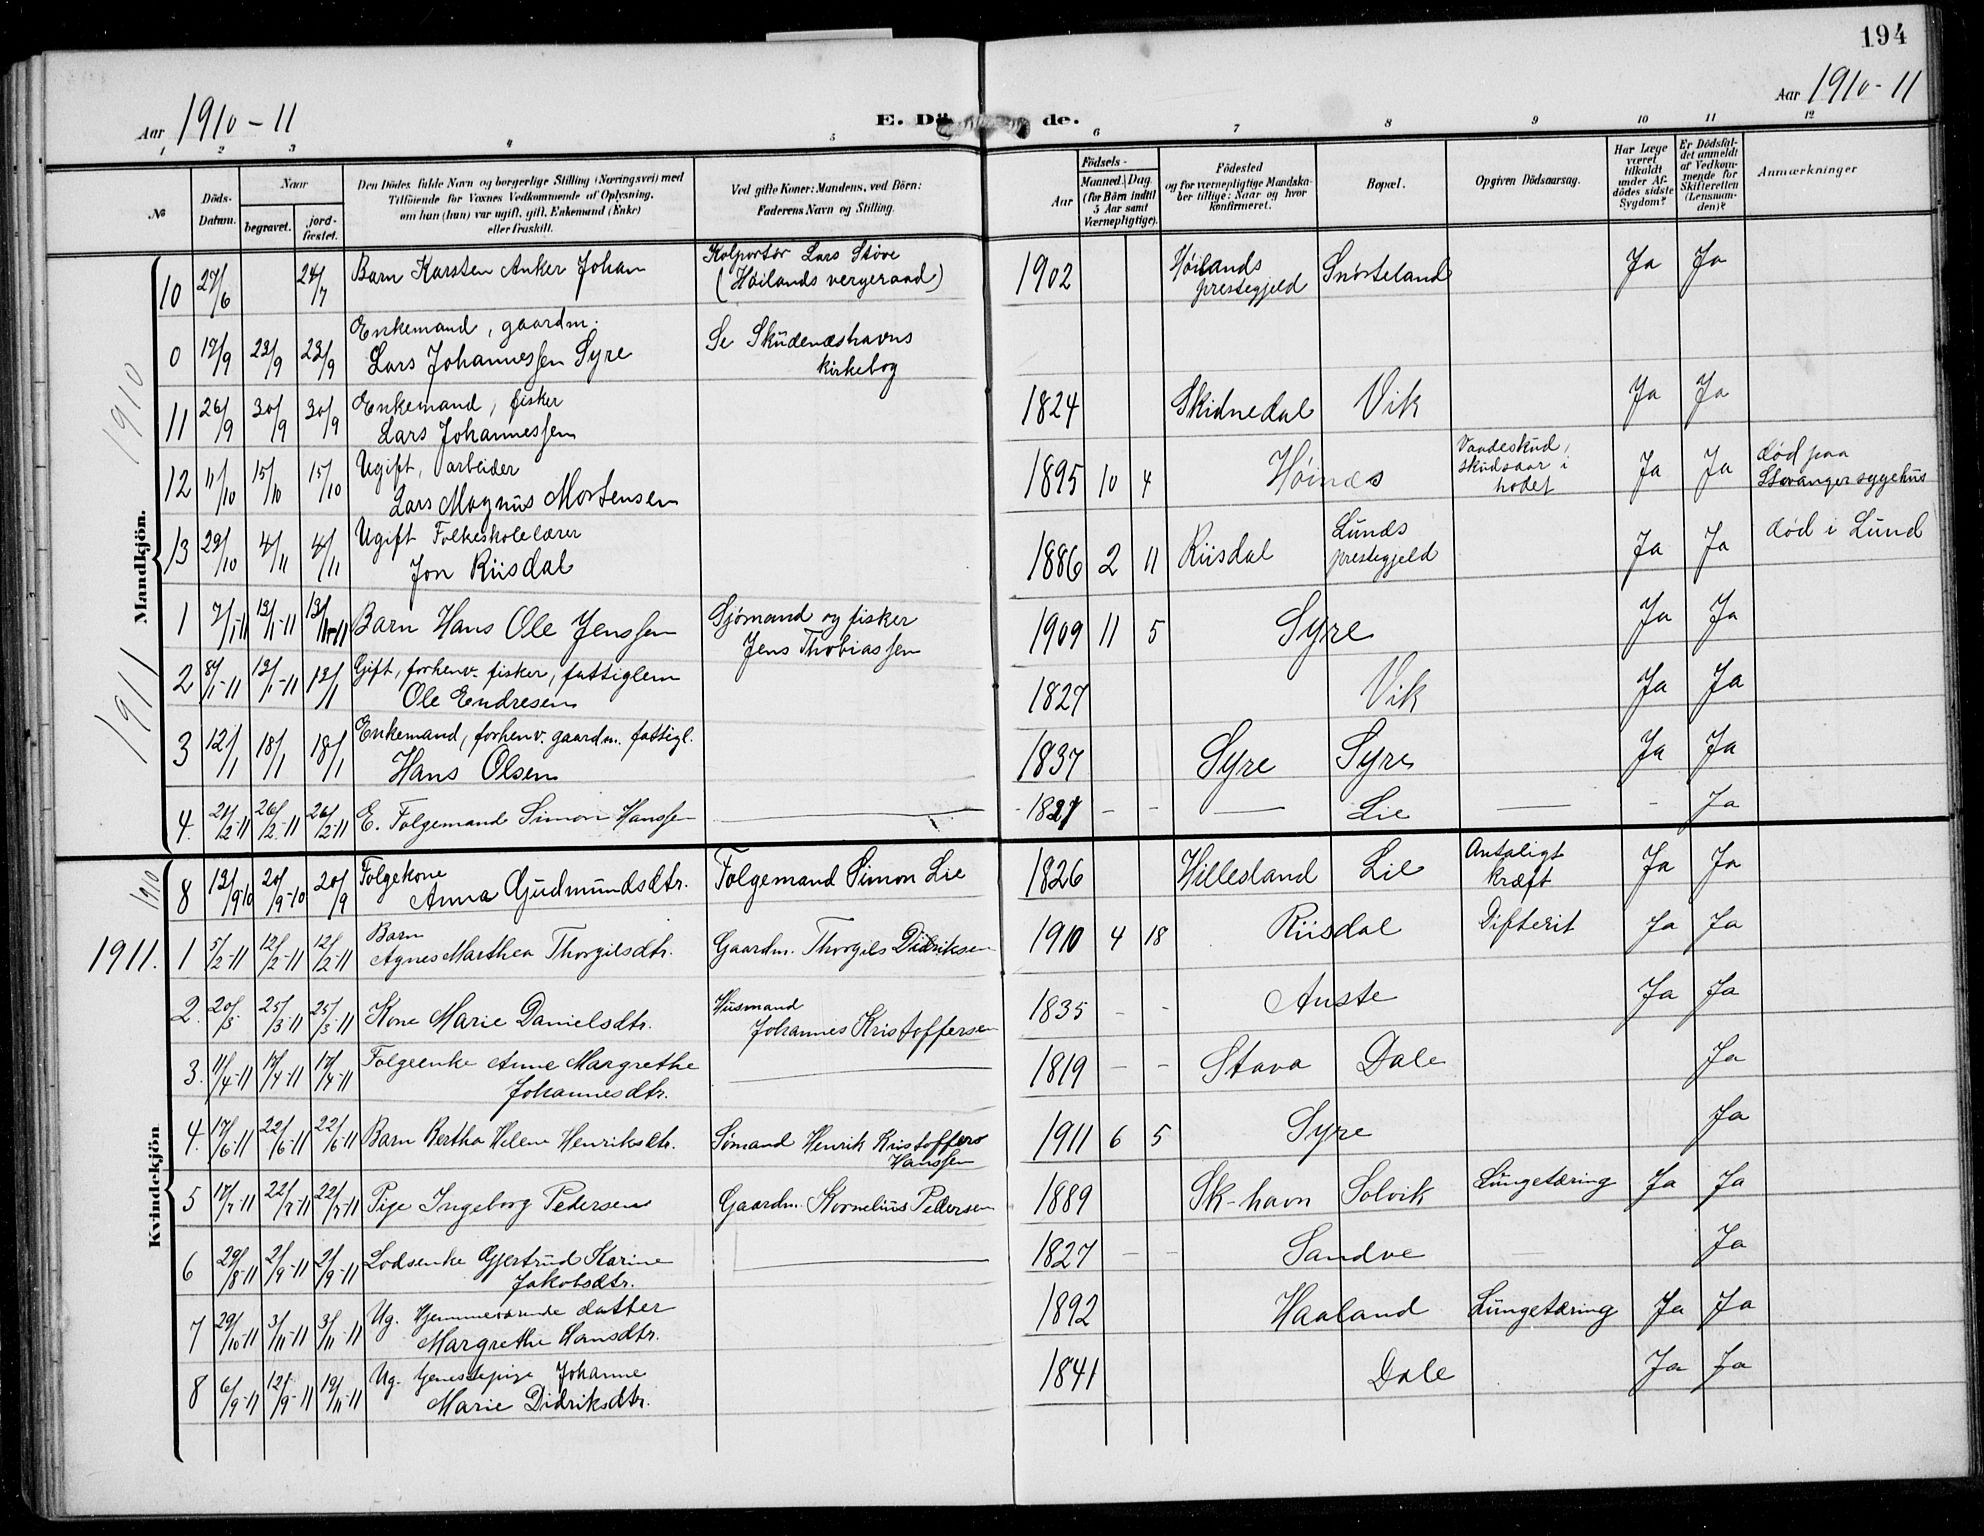 194
Aar 1910-11
E. Dö de.
Aar 1910-11
1 2 3 4 5 6 7 8 9 10 11 12
№
Döds-Datum.
Naar
begravet.
jord-fæstet.
Den Dödes fulde Navn og borgerlige Stilling (Næringsvei) med
Tilföiende for Voxnes Vedkommende af Oplysning,
om han (hun) var ugift, gift, Enkemand (Enke)
eller fraskilt.
Ved gifte Koner: Mandens, ved Börn:
Faderens Navn og Stilling.
Födsels-
Aar
Maaned. Dag.
(for Börn indtil
5 Aar samt
Værnepligtige).
Födested
og for værnepligtige Mandska-
ber tillige: Naar og hvor
konfirmeret.
Bopæl.
Opgiven Dödsaarsag.
Har Læge
været
tilkaldt
under Af-
dödes sidste
Sygdom?
Er Dödsfal-
det anmeldt
af Vedkom-
mende for
Skifteretten
(Lensman-
den)?
Anmærkninger
Mandkjön.
1910
10 27/6 24/7 Barn Karsten Anker Johan Kolportør Lars Støve (Høilands vergeraad) 1902 Høilands prestegjeld Snørteland Ja Ja
0 19/9 23/9 23/9 Enkemand, gaardm. Lars Johannessen Syre Se Skudenæshavns kirkebog
11 26/9 30/9 30/9 Enkemand, fisker Lars Johannessen 1824 Skidnedal Vik Ja Ja
12 11/10 15/10 15/10 Ugift, arbeider Lars Magnus Mortensen 1895 10 4 Høinæs Vaadeskud, skudsaar i hodet Ja Ja død paa Stavanger sygehus
13 29/10 4/11 4/11 Ugift Folkeskolelærer Jon Riisdal 1886 2 11 Riisdal Lunds prestegjeld Ja Ja død i Lund
1911
1 7/1-11 13/1-11 13/1-11 Barn Hans Ole Jenssen Sjømand og fisker Jens Thobiassen 1909 11 5 Syre Ja Ja
2 8/1-11 12/1-11 12/1 Gift, forhenv. fisker, fattiglem Ole Endresen 1827 Vik Ja Ja
3 12/1 18/1 18/1 Enkemand, forhenv. gaardm. fattigl. Hans Olsen 1837 Syre Syre Ja Ja
4. 21/2-11 26/2-11 26/2-11 E. Folgemand Simon Hanssen — - 1827 - - — Lie — - Ja
Kvindekjön
1910
8 12/9 10 20/9-10 20/9 Folgekone Anna Gjudmundsdtr. Folgemand Simon Lie 1826 Hillesland Lie Antaligt kræft Ja Ja
1911.
1 5/2-11 12/2-11 12/2-11 Barn Agnes Marthea Thorgilsdtr. Gaardm. Thorgils Didriksen 1910 4 18 Riisdal Difterit Ja Ja
2. 20/3 25/3-11 25/3-11 Kone Marie Danielsdtr. Husmand Johannes Kristoffersen 1835 - - Auste Ja Ja
3. 11/4-11 17/4-11 17/4-11 Folgeenke Anne Margrethe Johannesdtr. — 1819 - - Stava Dale Ja
4. 17/6-11 22/6-11 22/6-11 Barn Bertha Helene Henriksdtr. Sømand Henrik Kristoffers Hanssen 1911 6 5 Syre Ja
5 17/7-11 22/7-11 22/7-11 Pige Ingeborg Pedersen Gaardm. Kornelius Pedersen 1889 Sk-havn Solvik Lungetæring Ja Ja
6 29/8-11 2/9-11 2/9-11 Lodsenke Gjertrud Karine Jakobsdtr. — 1827 - - Sandve — Ja
7 29/10-11 3/11-11 3/11-11 Ug. Hjemmeværende datter Margrethe Hansdtr. 1892 Haaland Lungetæring Ja Ja
8 6/9-11 12/9-11 19/11-11 Ug. tjenestepige Johanne Marie Didriksdtr. 1841 Dale Ja Ja